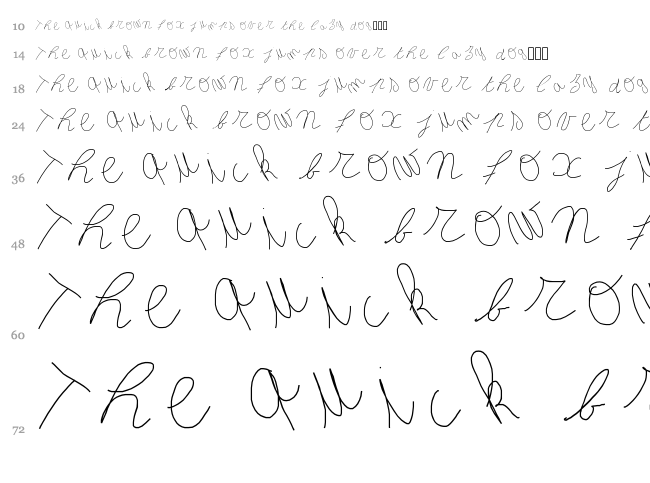 10 The quick brown fox jumps over the lazy dog
14 The quick brown fox jumps over the lazy dog
18 The quick brown fox jumps over the lazy dog
24 The quick brown fox jumps over the
36 The quick brown fox
48 The quick brown
60 The quick brow
72 The quick br